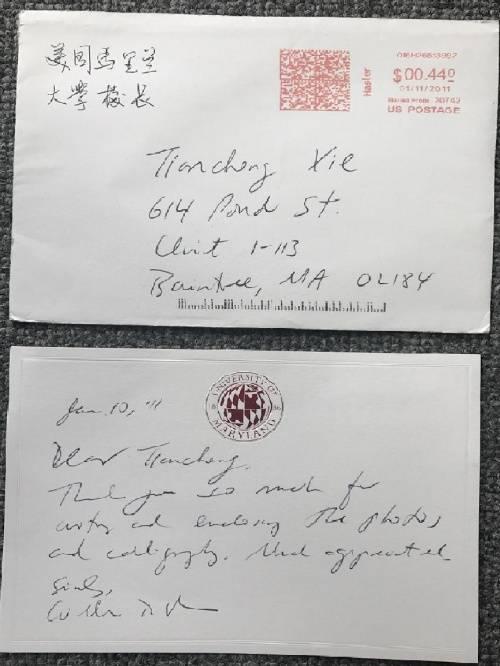 美国馬里兰
大學校长
$00.44⁰
01/11/2011
Mailed From 20742
US POSTAGE
Hasler
Tiancheng Xie
614 Pond St.
Unit 1-113
Braintree, MA 02184
UNIVERSITY OF
MARYLAND
Jan. 10, '11
Dear Tiancheng,
Thank you so much for
writing and enclosing the photos
and calligraphy. Much appreciated